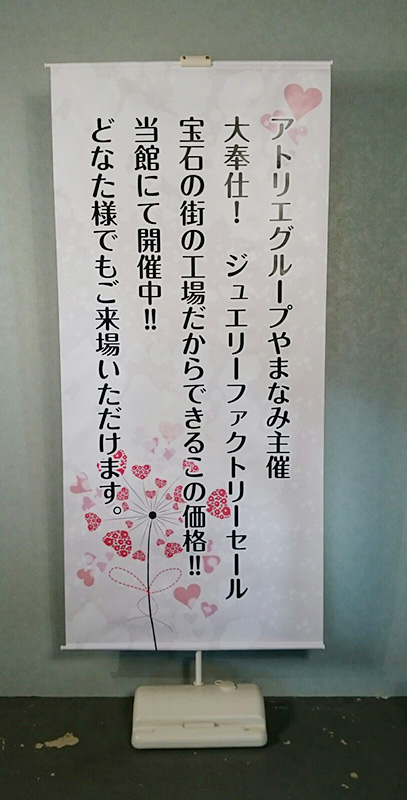 アトリエグループやまなみ主催
大奉仕！　ジュエリーファクトリーセール
宝石の街の工場だからできるこの価格!!
当館にて開催中!!
どなた様でもご来場いただけます。